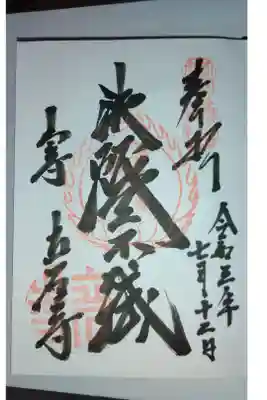 奉拝
令和三年
七月十二日
法燈不滅
山寺 立石寺